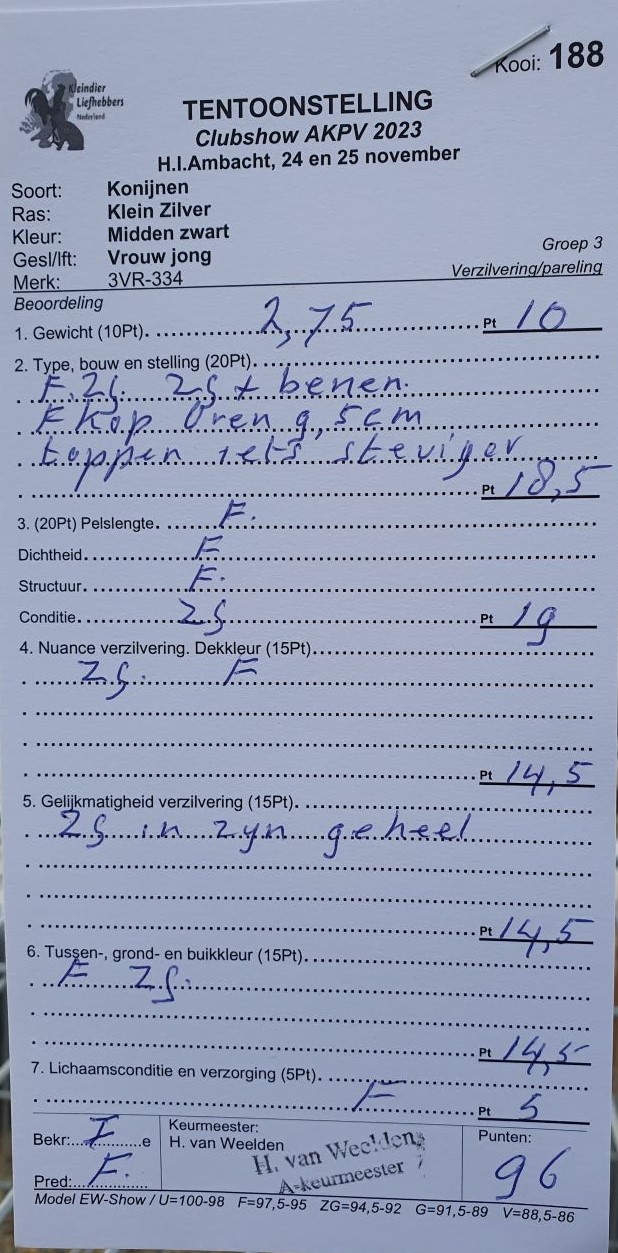 Kooi: 188
Kleindier
Liefhebbers
Nederland
TENTOONSTELLING
Clubshow AKPV 2023
H.I.Ambacht, 24 en 25 november
Soort: Konijnen
Ras: Klein Zilver
Kleur: Midden zwart
Gesl/lft: Vrouw jong
Groep 3
Merk: 3VR-334
Verzilvering/pareling
Beoordeling
1. Gewicht (10Pt). 2,75 Pt 10
2. Type, bouw en stelling (20Pt).
F. ZG ZG + benen.
F Kop Oren 9,5cm
toppen iets steviger
Pt 18,5
3. (20Pt) Pelslengte. F.
Dichtheid. F
Structuur. F.
Conditie. ZG Pt 19
4. Nuance verzilvering. Dekkleur (15Pt).
ZG. F
Pt 14,5
5. Gelijkmatigheid verzilvering (15Pt).
ZG in zyn geheel
Pt 14,5
6. Tussen-, grond- en buikkleur (15Pt).
F ZG.
Pt 14,5
7. Lichaamsconditie en verzorging (5Pt).
F Pt 5
Bekr: I e
Keurmeester:
H. van Weelden
H. van Weelden
A-keurmeester
Punten:
96
Pred: F.
Model EW-Show / U=100-98 F=97,5-95 ZG=94,5-92 G=91,5-89 V=88,5-86